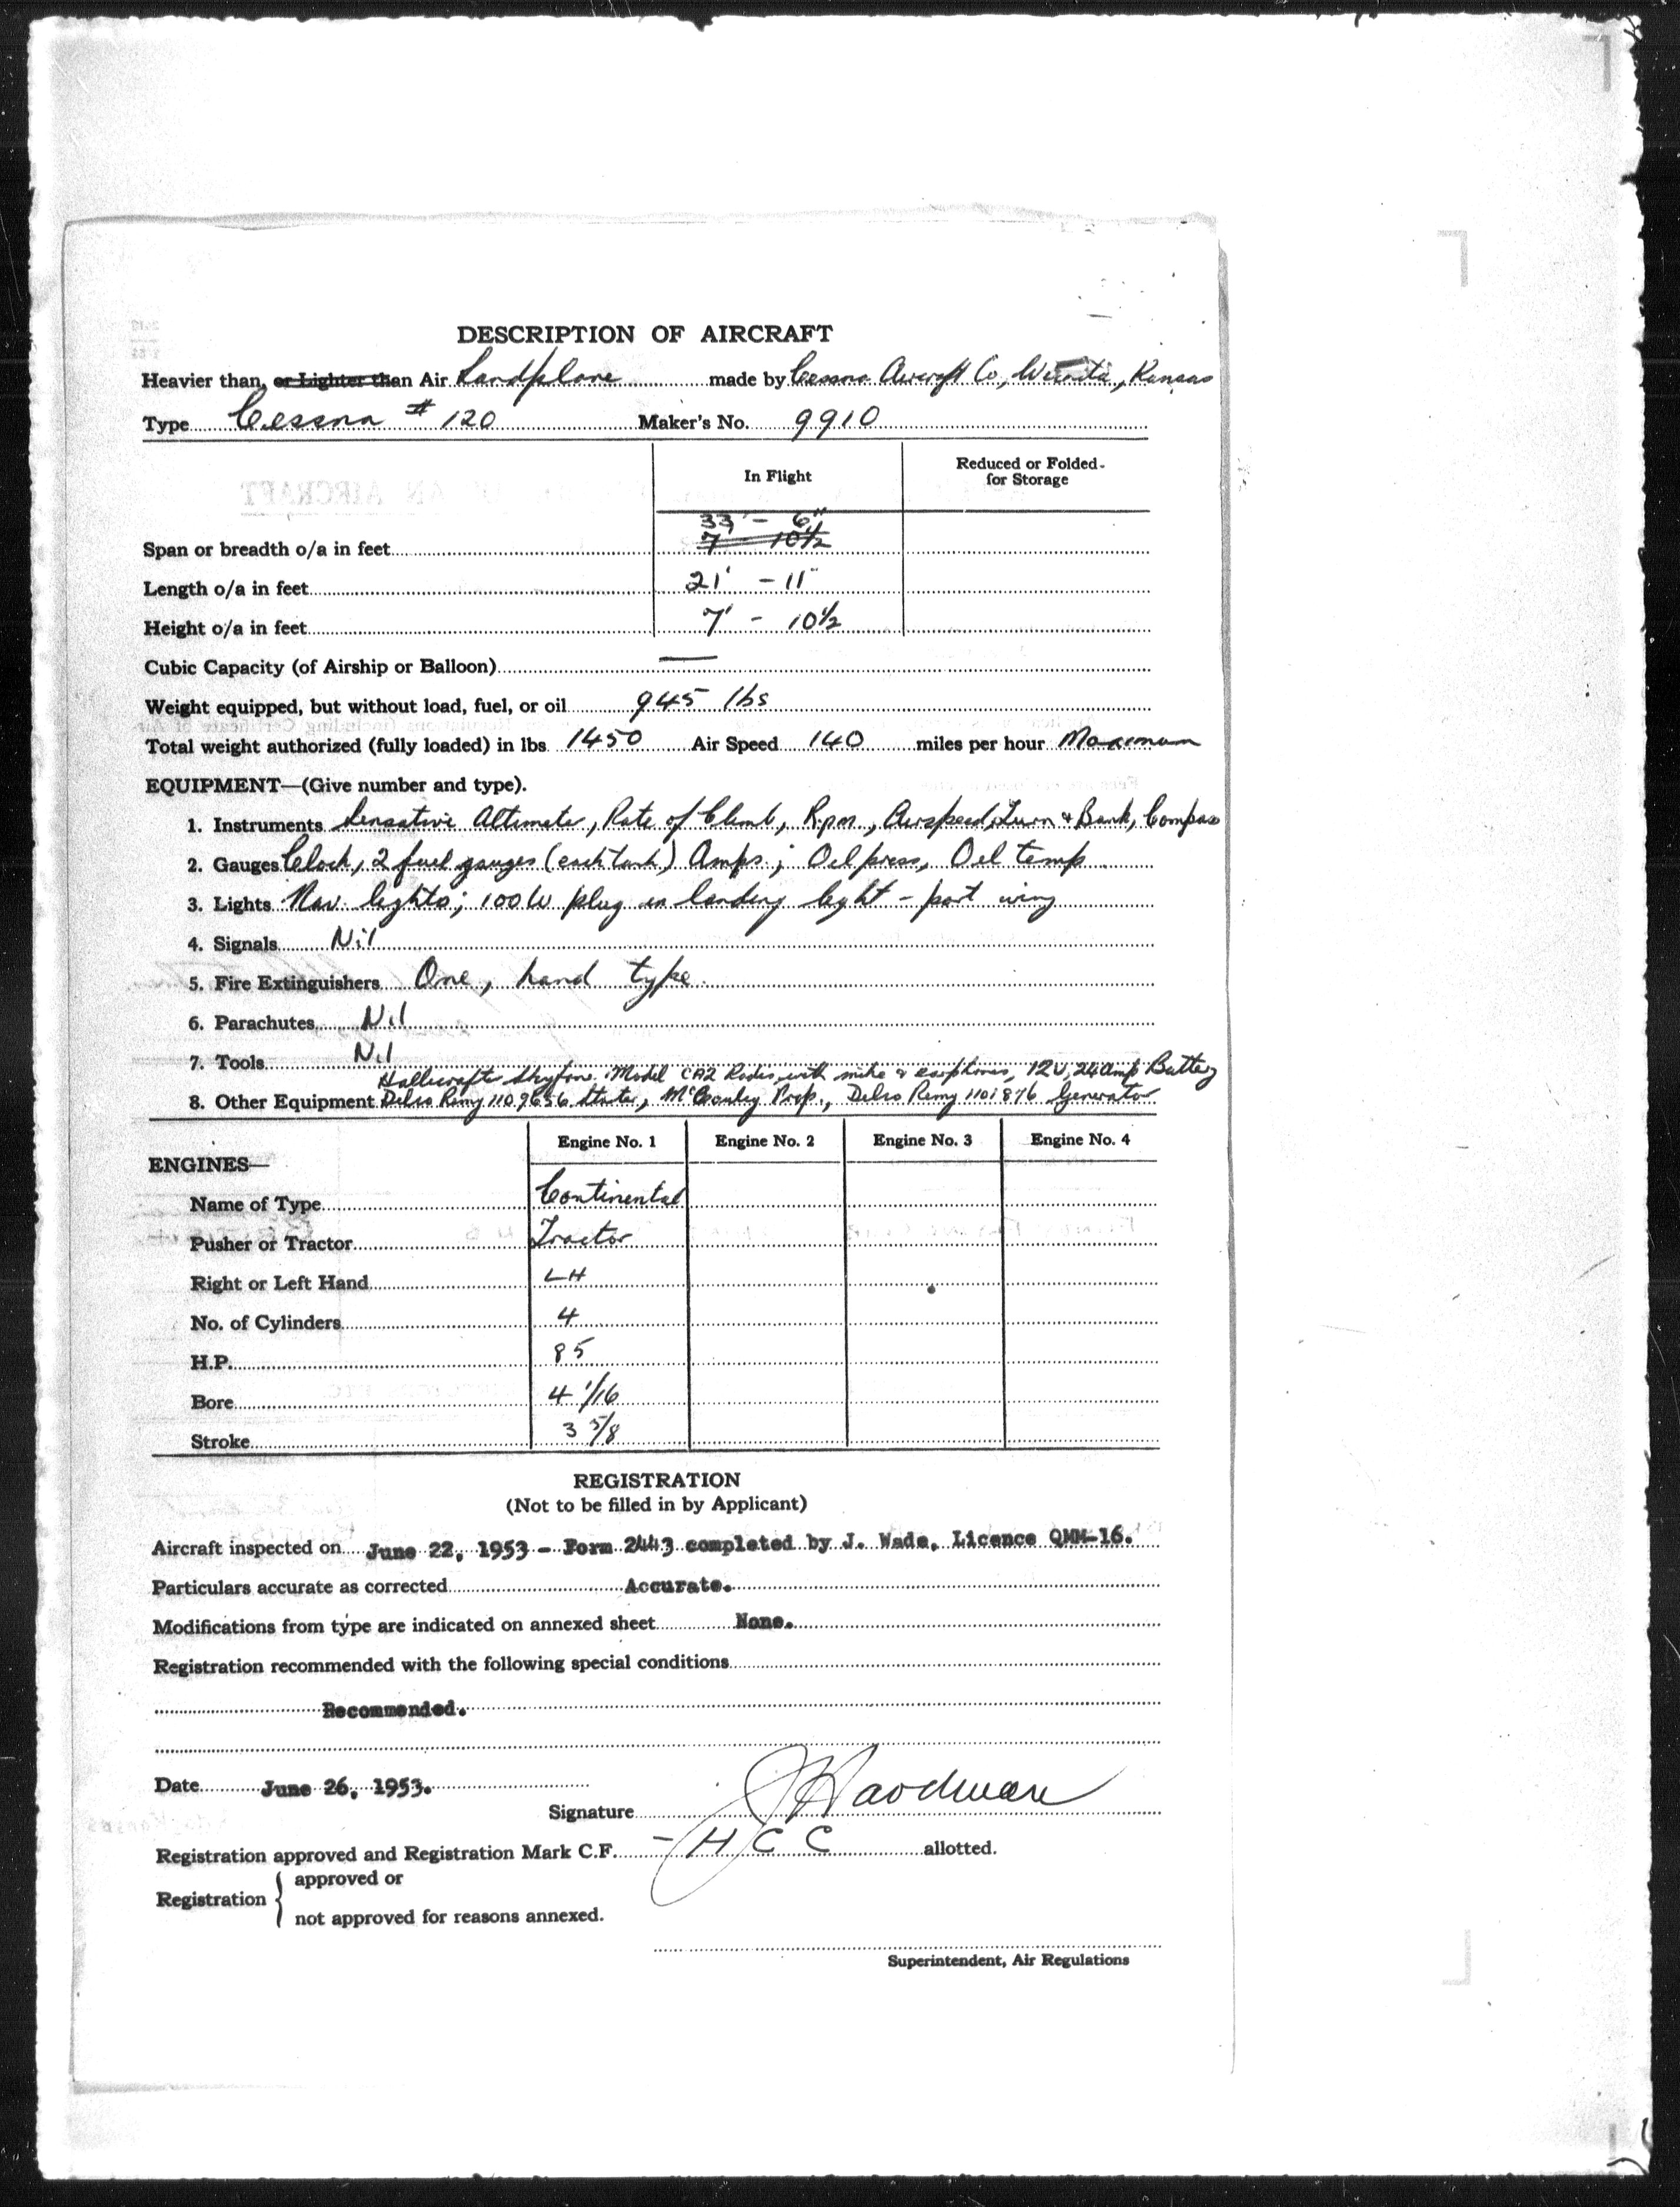 DESCRIPTION OF AIRCRAFT
Heavier than, or Lighter than Air Landplane made by Cessna Aircraft Co, Wichita, Kansas
Type Cessna # 120 Maker's No. 9910
In Flight Reduced or Folded for Storage
33' - 6"
Span or breadth o/a in feet 7' 10½
Length o/a in feet 21' - 11"
Height o/a in feet 7' - 10½
Cubic Capacity (of Airship or Balloon) —
Weight equipped, but without load, fuel, or oil 945 lbs
Total weight authorized (fully loaded) in lbs 1450 Air Speed 140 miles per hour Maximum
EQUIPMENT—(Give number and type).
1. Instruments Sensative Altimeter, Rate of Climb, R.p.m., Airspeed, Turn & Bank, Compass
2. Gauges Clock, 2 fuel gauges (each tank) Amps; Oil press, Oil temp
3. Lights Nav. lights; 100W plug in landing light - port wing
4. Signals Nil
5. Fire Extinguishers One, hand type
6. Parachutes Nil
7. Tools Nil
Hallicrafter Skyfone Model CA2 Radio with mike & earphones, 12V, 24 amp Battery
8. Other Equipment Delco Remy 1109656 starter, McCauley Prop., Delco Remy 1101876 Generator
ENGINES— Engine No. 1 Engine No. 2 Engine No. 3 Engine No. 4
Name of Type Continental
Pusher or Tractor Tractor
Right or Left Hand LH
No. of Cylinders 4
H.P. 85
Bore 4 1/16
Stroke 3 5/8
REGISTRATION
(Not to be filled in by Applicant)
Aircraft inspected on June 22, 1953 - Form 2443 completed by J. Wade, Licence QMM-16.
Particulars accurate as corrected Accurate.
Modifications from type are indicated on annexed sheet None.
Registration recommended with the following special conditions
Recommended.
Date June 26, 1953.
Signature
Registration approved and Registration Mark C.F. - H C C allotted.
Registration { approved or
not approved for reasons annexed.
Superintendent, Air Regulations